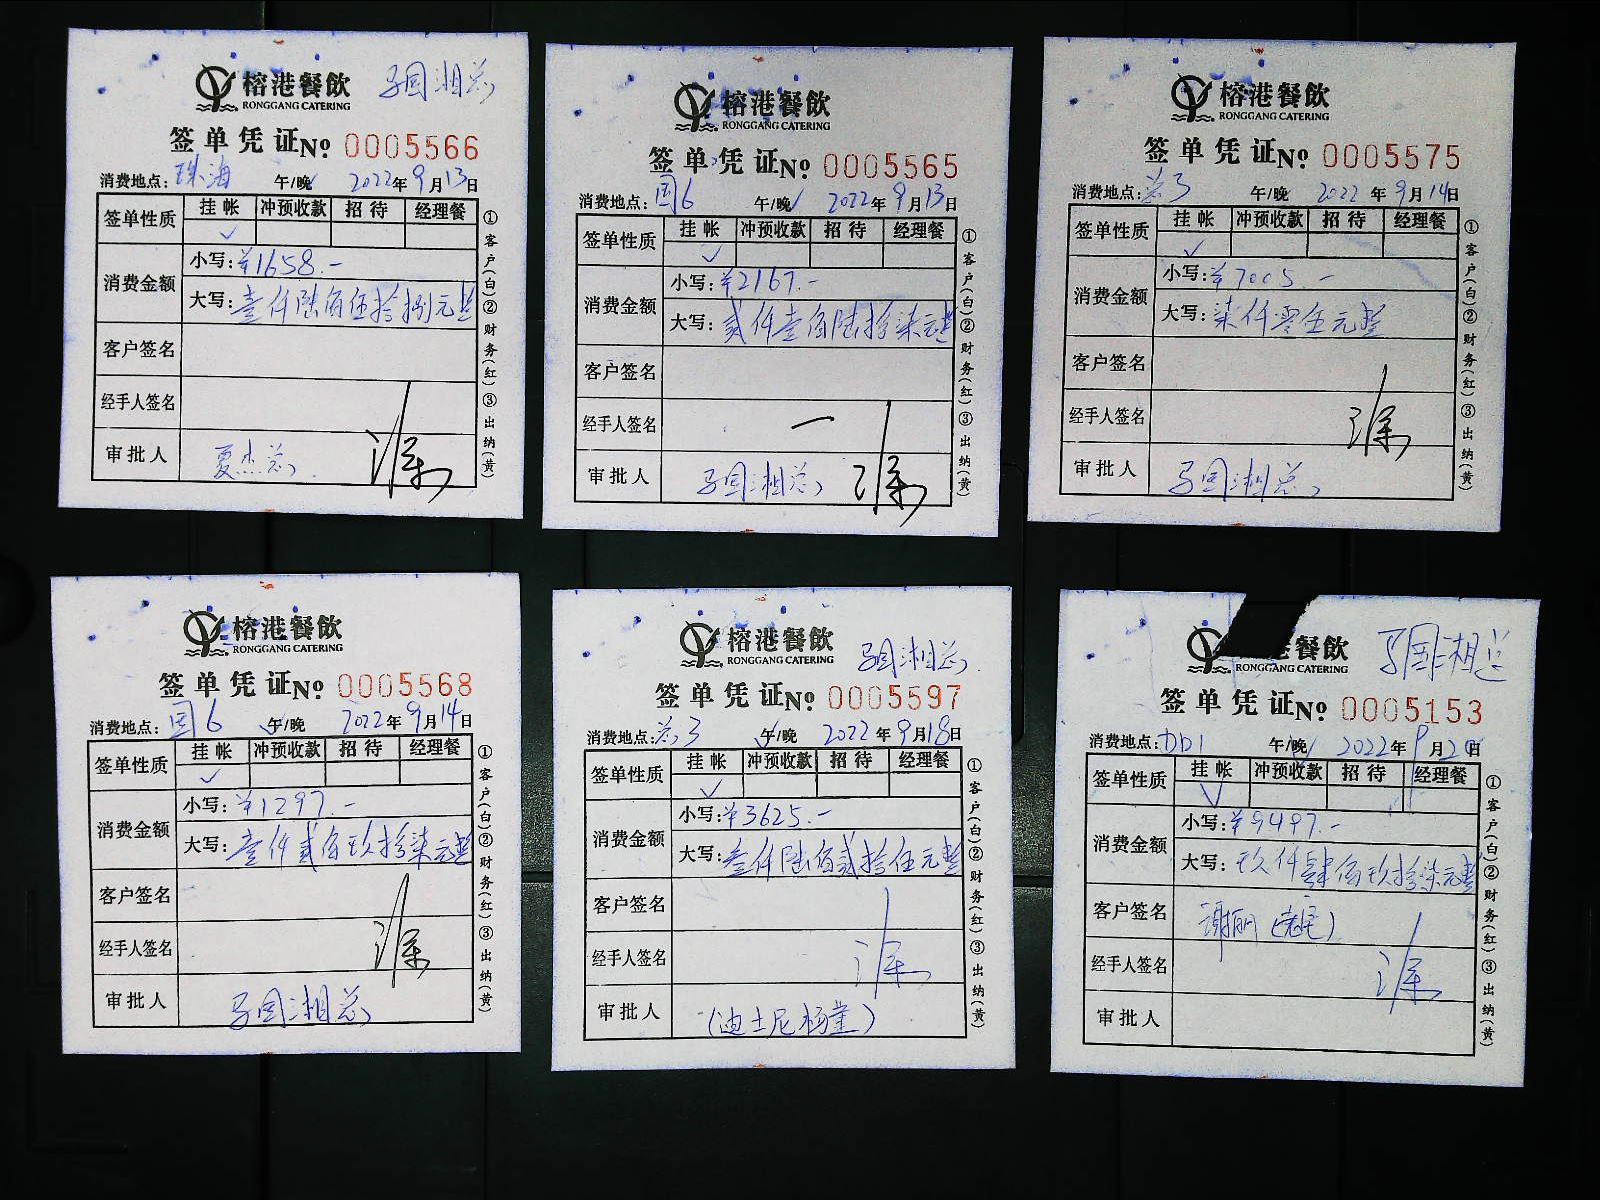 榕港餐飲
RONGGANG CATERING
签单凭证№ 0005566
消费地点：珠海 午/晚 2022年9月13日
签单性质 挂帐 冲预收款 招待 经理餐
✓
消费金额
小写：¥1658.-
大写：壹仟陆佰伍拾捌元整
客户签名
经手人签名
审批人 夏杰总
①客户(白)②财务(红)③出纳(黄)
榕港餐飲
RONGGANG CATERING
签单凭证№ 0005565
消费地点：国6 午/晚 2022年9月13日
签单性质 挂帐 冲预收款 招待 经理餐
✓
消费金额
小写：¥2167.-
大写：贰仟壹佰陆拾柒元整
客户签名
经手人签名
审批人 国湘总
①客户(白)②财务(红)③出纳(黄)
榕港餐飲
RONGGANG CATERING
签单凭证№ 0005575
消费地点： 午/晚 2022年9月14日
签单性质 挂帐 冲预收款 招待 经理餐
✓
消费金额
小写：¥7005.-
大写：柒仟零伍元整
客户签名
经手人签名
审批人 国湘总
①客户(白)②财务(红)③出纳(黄)
榕港餐飲
RONGGANG CATERING
签单凭证№ 0005568
消费地点：国6 午/晚 2022年9月14日
签单性质 挂帐 冲预收款 招待 经理餐
✓
消费金额
小写：¥1297.-
大写：壹仟贰佰玖拾柒元整
客户签名
经手人签名
审批人 国湘总
①客户(白)②财务(红)③出纳(黄)
榕港餐飲
国湘总
RONGGANG CATERING
签单凭证№ 0005597
消费地点： 午/晚 2022年9月18日
签单性质 挂帐 冲预收款 招待 经理餐
✓
消费金额
小写：¥3625.-
大写：叁仟陆佰贰拾伍元整
客户签名
经手人签名
审批人 (迪士尼杨董)
①客户(白)②财务(红)③出纳(黄)
港餐飲
国湘总
RONGGANG CATERING
签单凭证№ 0005153
消费地点：DD1 午/晚 2022年9月20日
签单性质 挂帐 冲预收款 招待 经理餐
✓
消费金额
小写：¥9497.-
大写：玖仟肆佰玖拾柒元整
客户签名 谢丽
经手人签名
审批人
①客户(白)②财务(红)③出纳(黄)